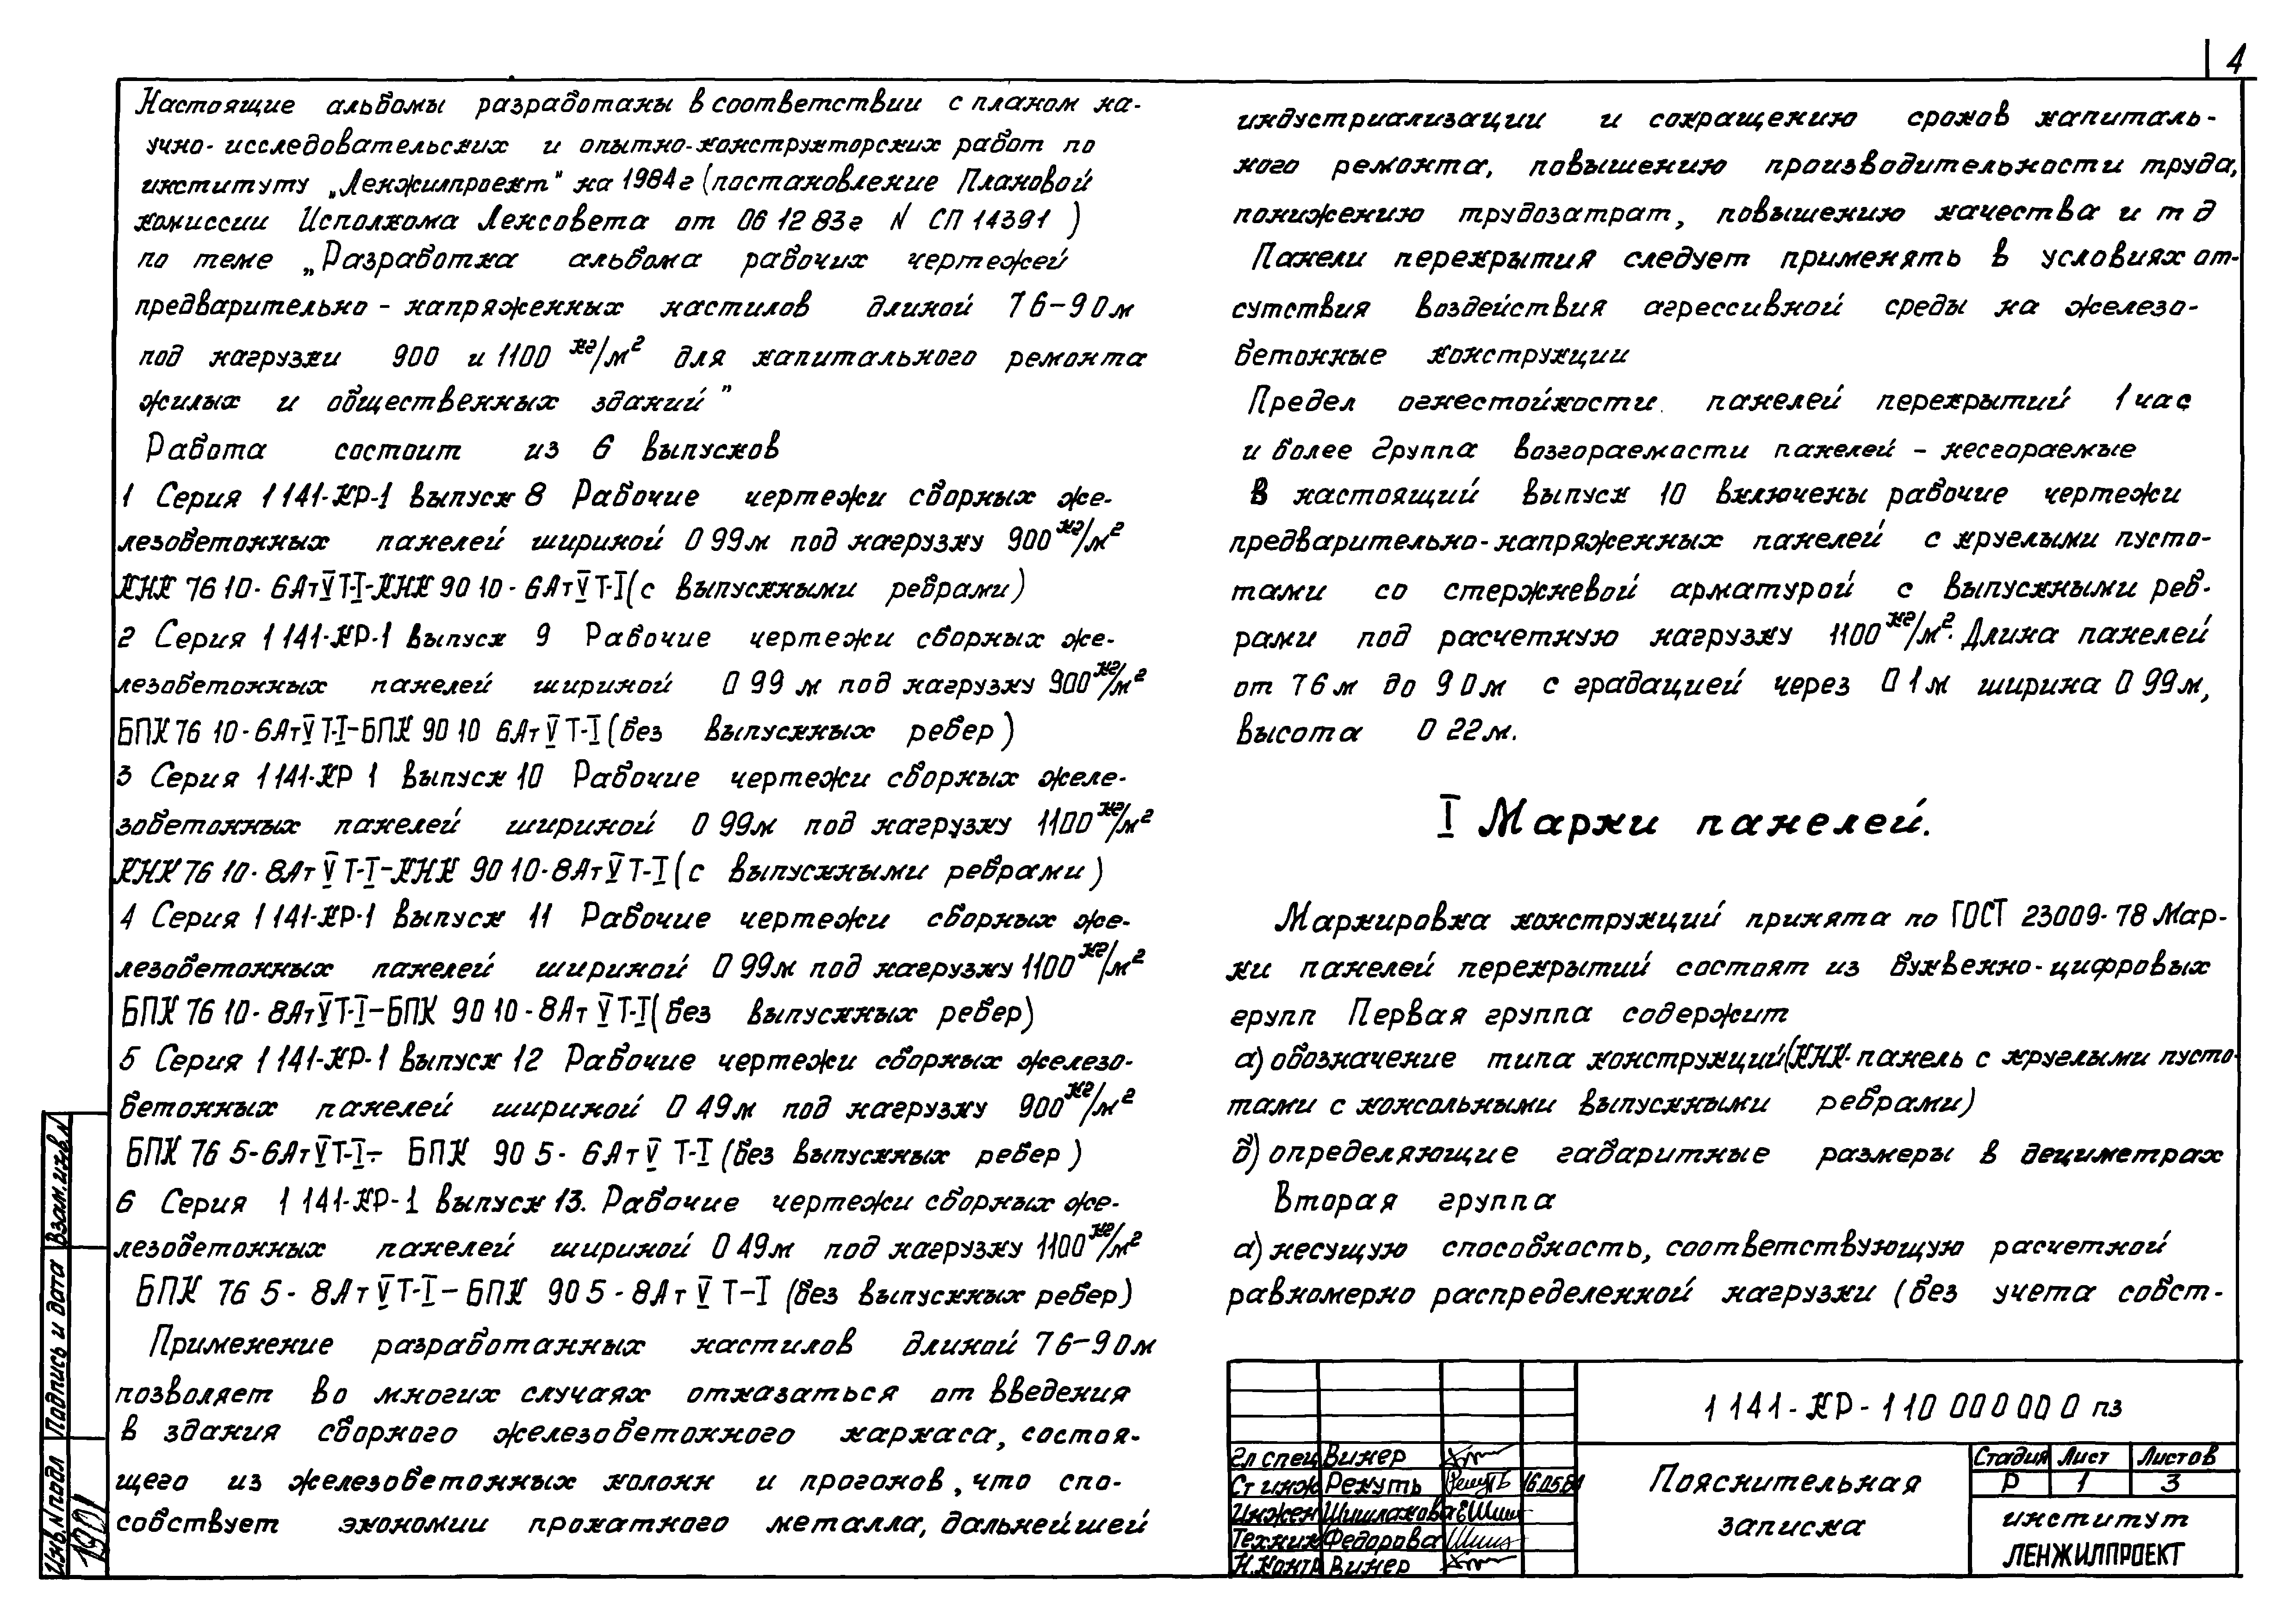 4
Настоящие альбомы разработаны в соответствии с планом на-
учно-исследовательских и опытно-конструкторских работ по
институту „Ленжилпроект" на 1984г (постановление Плановой
комиссии Исполкома Ленсовета от 06 12 83г N СП 14391 )
по теме „Разработка альбома рабочих чертежей
предварительно - напряженных настилов длиной 7 6-9 0м
под нагрузки 900 и 1100 кг/м² для капитального ремонта
жилых и общественных зданий"
Работа состоит из 6 выпусков
1 Серия 1 141-КР-1 выпуск 8 Рабочие чертежи сборных же-
лезобетонных панелей шириной 0 99м под нагрузку 900 кг/м²
КНК 76 10-6АтV Т-I-КНК 90 10-6АтV Т-I (с выпускными ребрами)
2 Серия 1 141-КР-1 выпуск 9 Рабочие чертежи сборных же-
лезобетонных панелей шириной 0 99 м под нагрузку 900 кг/м²
БПК 76 10-6АтV Т-I-БПК 90 10 6АтV Т-I (без выпускных ребер)
3 Серия 1 141-КР 1 выпуск 10 Рабочие чертежи сборных желе-
зобетонных панелей шириной 0 99м под нагрузку 1100 кг/м²
КНК 76 10-8АтV Т-I-КНК 90 10-8АтV Т-I (с выпускными ребрами)
4 Серия 1 141-КР-1 выпуск 11 Рабочие чертежи сборных же-
лезобетонных панелей шириной 0 99м под нагрузку 1100 кг/м²
БПК 76 10-8АтV Т-I-БПК 90 10-8АтV Т-I (без выпускных ребер)
5 Серия 1 141-КР-1 выпуск 12 Рабочие чертежи сборных железо-
бетонных панелей шириной 0 49м под нагрузку 900 кг/м²
БПК 76 5-6АтV Т-I- БПК 90 5-6АтV Т-I (без выпускных ребер)
6 Серия 1 141-КР-1 выпуск 13. Рабочие чертежи сборных же-
лезобетонных панелей шириной 0 49м под нагрузку 1100 кг/м²
БПК 76 5-8АтV Т-I-БПК 90 5-8АтV Т-I (без выпускных ребер)
Применение разработанных настилов длиной 7 6-9 0м
позволяет во многих случаях отказаться от введения
в здания сборного железобетонного каркаса, состоя-
щего из железобетонных колонн и прогонов, что спо-
собствует экономии прокатного металла, дальнейшей
индустриализации и сокращению сроков капиталь-
ного ремонта, повышению производительности труда,
понижению трудозатрат, повышению качества и т д
Панели перекрытия следует применять в условиях от-
сутствия воздействия агрессивной среды на железо-
бетонные конструкции
Предел огнестойкости панелей перекрытий 1 час
и более Группа возгораемости панелей - несгораемые
В настоящий выпуск 10 включены рабочие чертежи
предварительно-напряженных панелей с круглыми пусто-
тами со стержневой арматурой с выпускными реб-
рами под расчетную нагрузку 1100 кг/м². Длина панелей
от 7 6 м до 9 0м с градацией через 0 1м ширина 0 99м,
высота 0 22м.
I Марки панелей.
Маркировка конструкций принята по ГОСТ 23009-78 Мар-
ки панелей перекрытий состоят из буквенно-цифровых
групп Первая группа содержит
а) обозначение типа конструкций (КНК-панель с круглыми пусто-
тами с консольными выпускными ребрами)
б) определяющие габаритные размеры в дециметрах
Вторая группа
а) несущую способность, соответствующую расчетной
равномерно распределенной нагрузки (без учета собст-
1 141-КР-1 10 000 00 0 ПЗ
Гл спец Винер
Ст инж Рекуть 16.05.84
Инжен Шишлакова
Техник Федорова
Н.контр Винер
Пояснительная
записка
Стадия Лист Листов
Р 1 3
институт
ЛЕНЖИЛПРОЕКТ
Взам.инв.N
Подпись и дата
Инв.N подл
1901